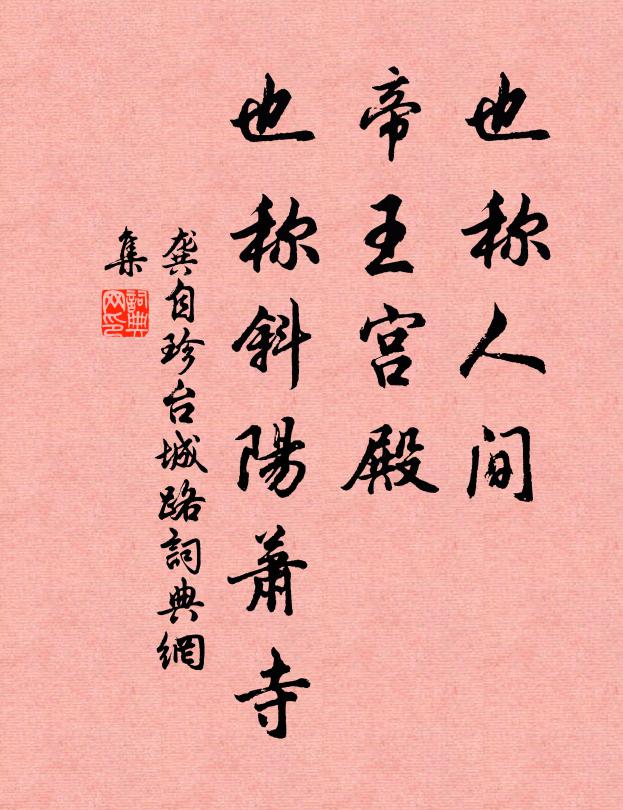 也称人间
帝王宫殿
也称斜陽蕭寺
龔自珍台城路詞典網
集
詞典网印